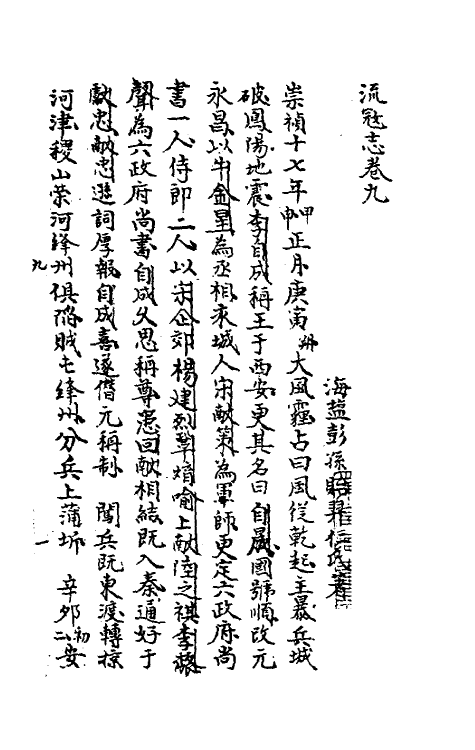 流寇志卷九
海盐彭孫貽
崇禎十七年甲申正月庚寅朔大風霾占曰風従乾起主暴兵城
破鳳陽地震李自成称王于西安更其名曰自晟國號順改元
永昌以牛金星為丞相永城人宋献策為軍師更定六政府尚
書一人侍郎二人以宋企郊楊建烈鞏焴喻上猷陸之祺李
聲為六政府尚書自成久思稱尊恚回献相結既入秦通好于
献忠献忠遜詞厚報自成喜遂僣元称制 闖兵既東渡轉掠
河津稷山荣河絳州俱陥賊屯絳州分兵上蒲坂 辛夘初二安
九
一